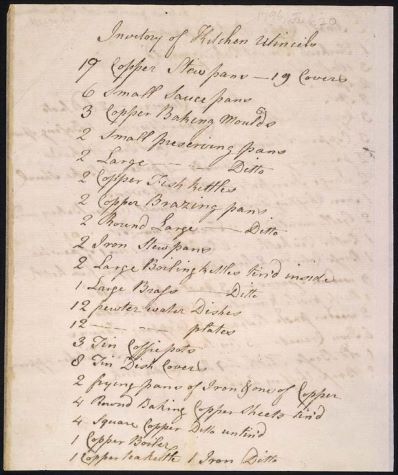 Inventory of Kitchen Utincils
19 Copper Stewpans — 19 Covers
6 Small Sauce pans
3 Copper Baking Moulds
2 Small preserving pans
2 Large — — — Ditto
2 Copper Fish kettles
2 Copper Brazing pans
2 Round Large — Ditto
2 Iron Stewpans
2 Large Boiling kettles tin'd inside
1 Large Brass — Ditto
12 pewter water Dishes
12 — — — plates
3 Tin Coffie pots
8 Tin Dish Covers
2 frying pans of Iron & one of Copper
4 Round Baking Copper sheets tin'd
4 Square Copper Ditto untin'd
1 Copper Boiler
1 Copper teakettle 1 Iron Ditto